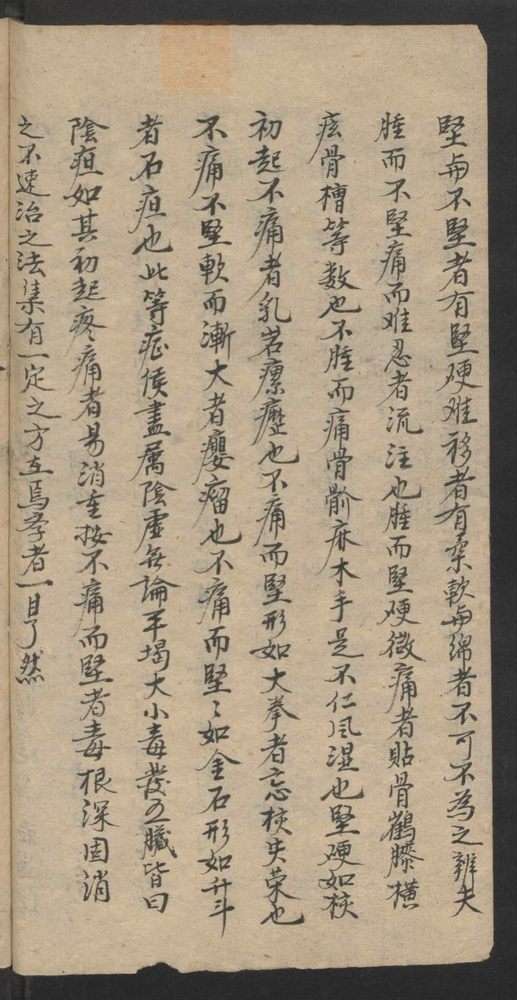 堅與不堅者有堅硬难移者有柔軟如綿者不可不為之辨夫
腫而不堅痛而难忍者流注也腫而堅硬微痛者貼骨鶴膝橫
痃骨槽等数也不腫而痛骨骱麻木手足不仁风湿也堅硬如核
初起不痛者乳岩瘰癧也不痛而堅形如大拳者忘核失荣也
不痛不堅軟而漸大者癭瘤也不痛而堅〻如金石形如升斗
者石疽也此等症候盡属陰虛無論平塌大小毒發五臟皆曰
陰疽如其初起疼痛者易消重按不痛而堅者毒根深固消
之不速治之法集有一定之方在焉孝者一目了然